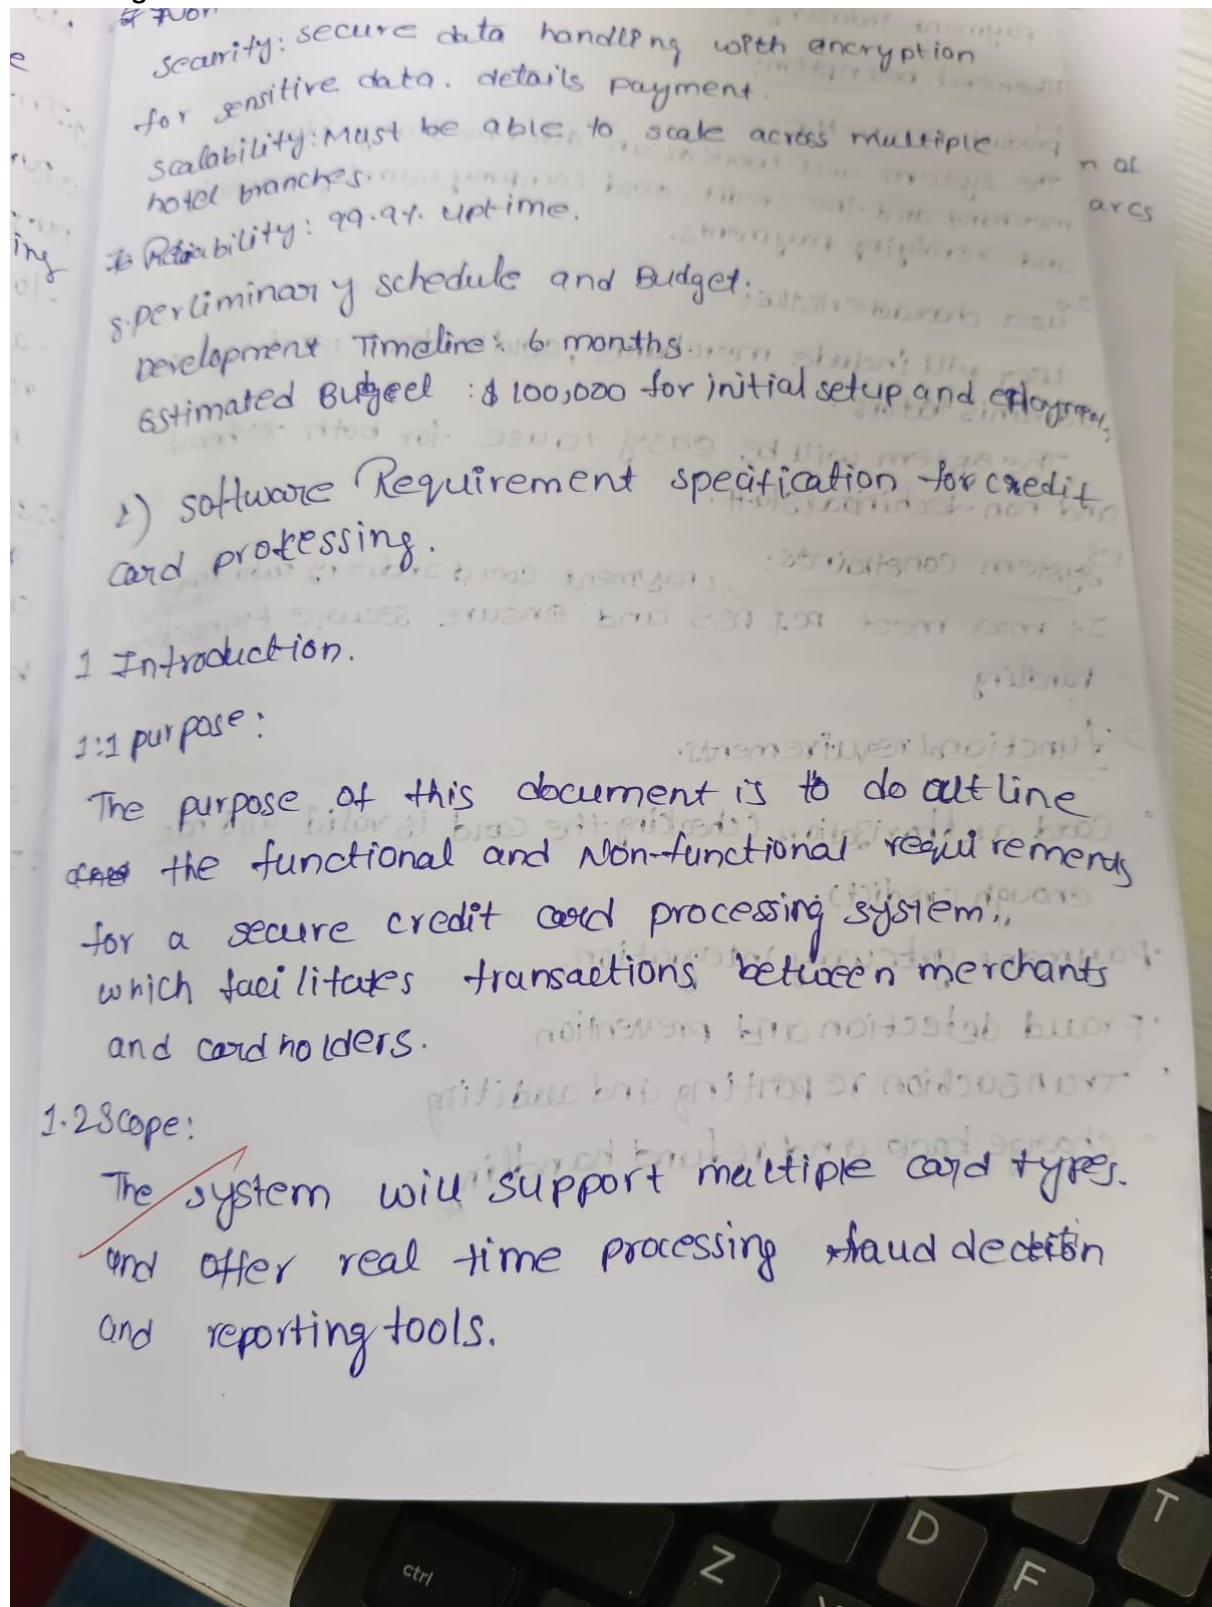 Security: secure data handling with encryption
for sensitive data. details payment.
Scalability: Must be able to scale across multiple
hotel branches.
Reliability: 99.9% uptime.
8. Perliminary schedule and Budget:
Development Timeline: 6 months.
Estimated Budgeel : $100,000 for initial setup and
2) software Requirement specification for credit
card processing.
1 Introduction.
1:1 purpose:
The purpose of this document is to do outline
the functional and Non-functional requirements
for a secure credit card processing system,
which facilitates transactions between merchants
and cardholders.
1.2 Scope:
The system will support multiple card types.
and offer real time processing faud dection
and reporting tools.
ing
n of
arcs
ctrl
Z
D
F
T